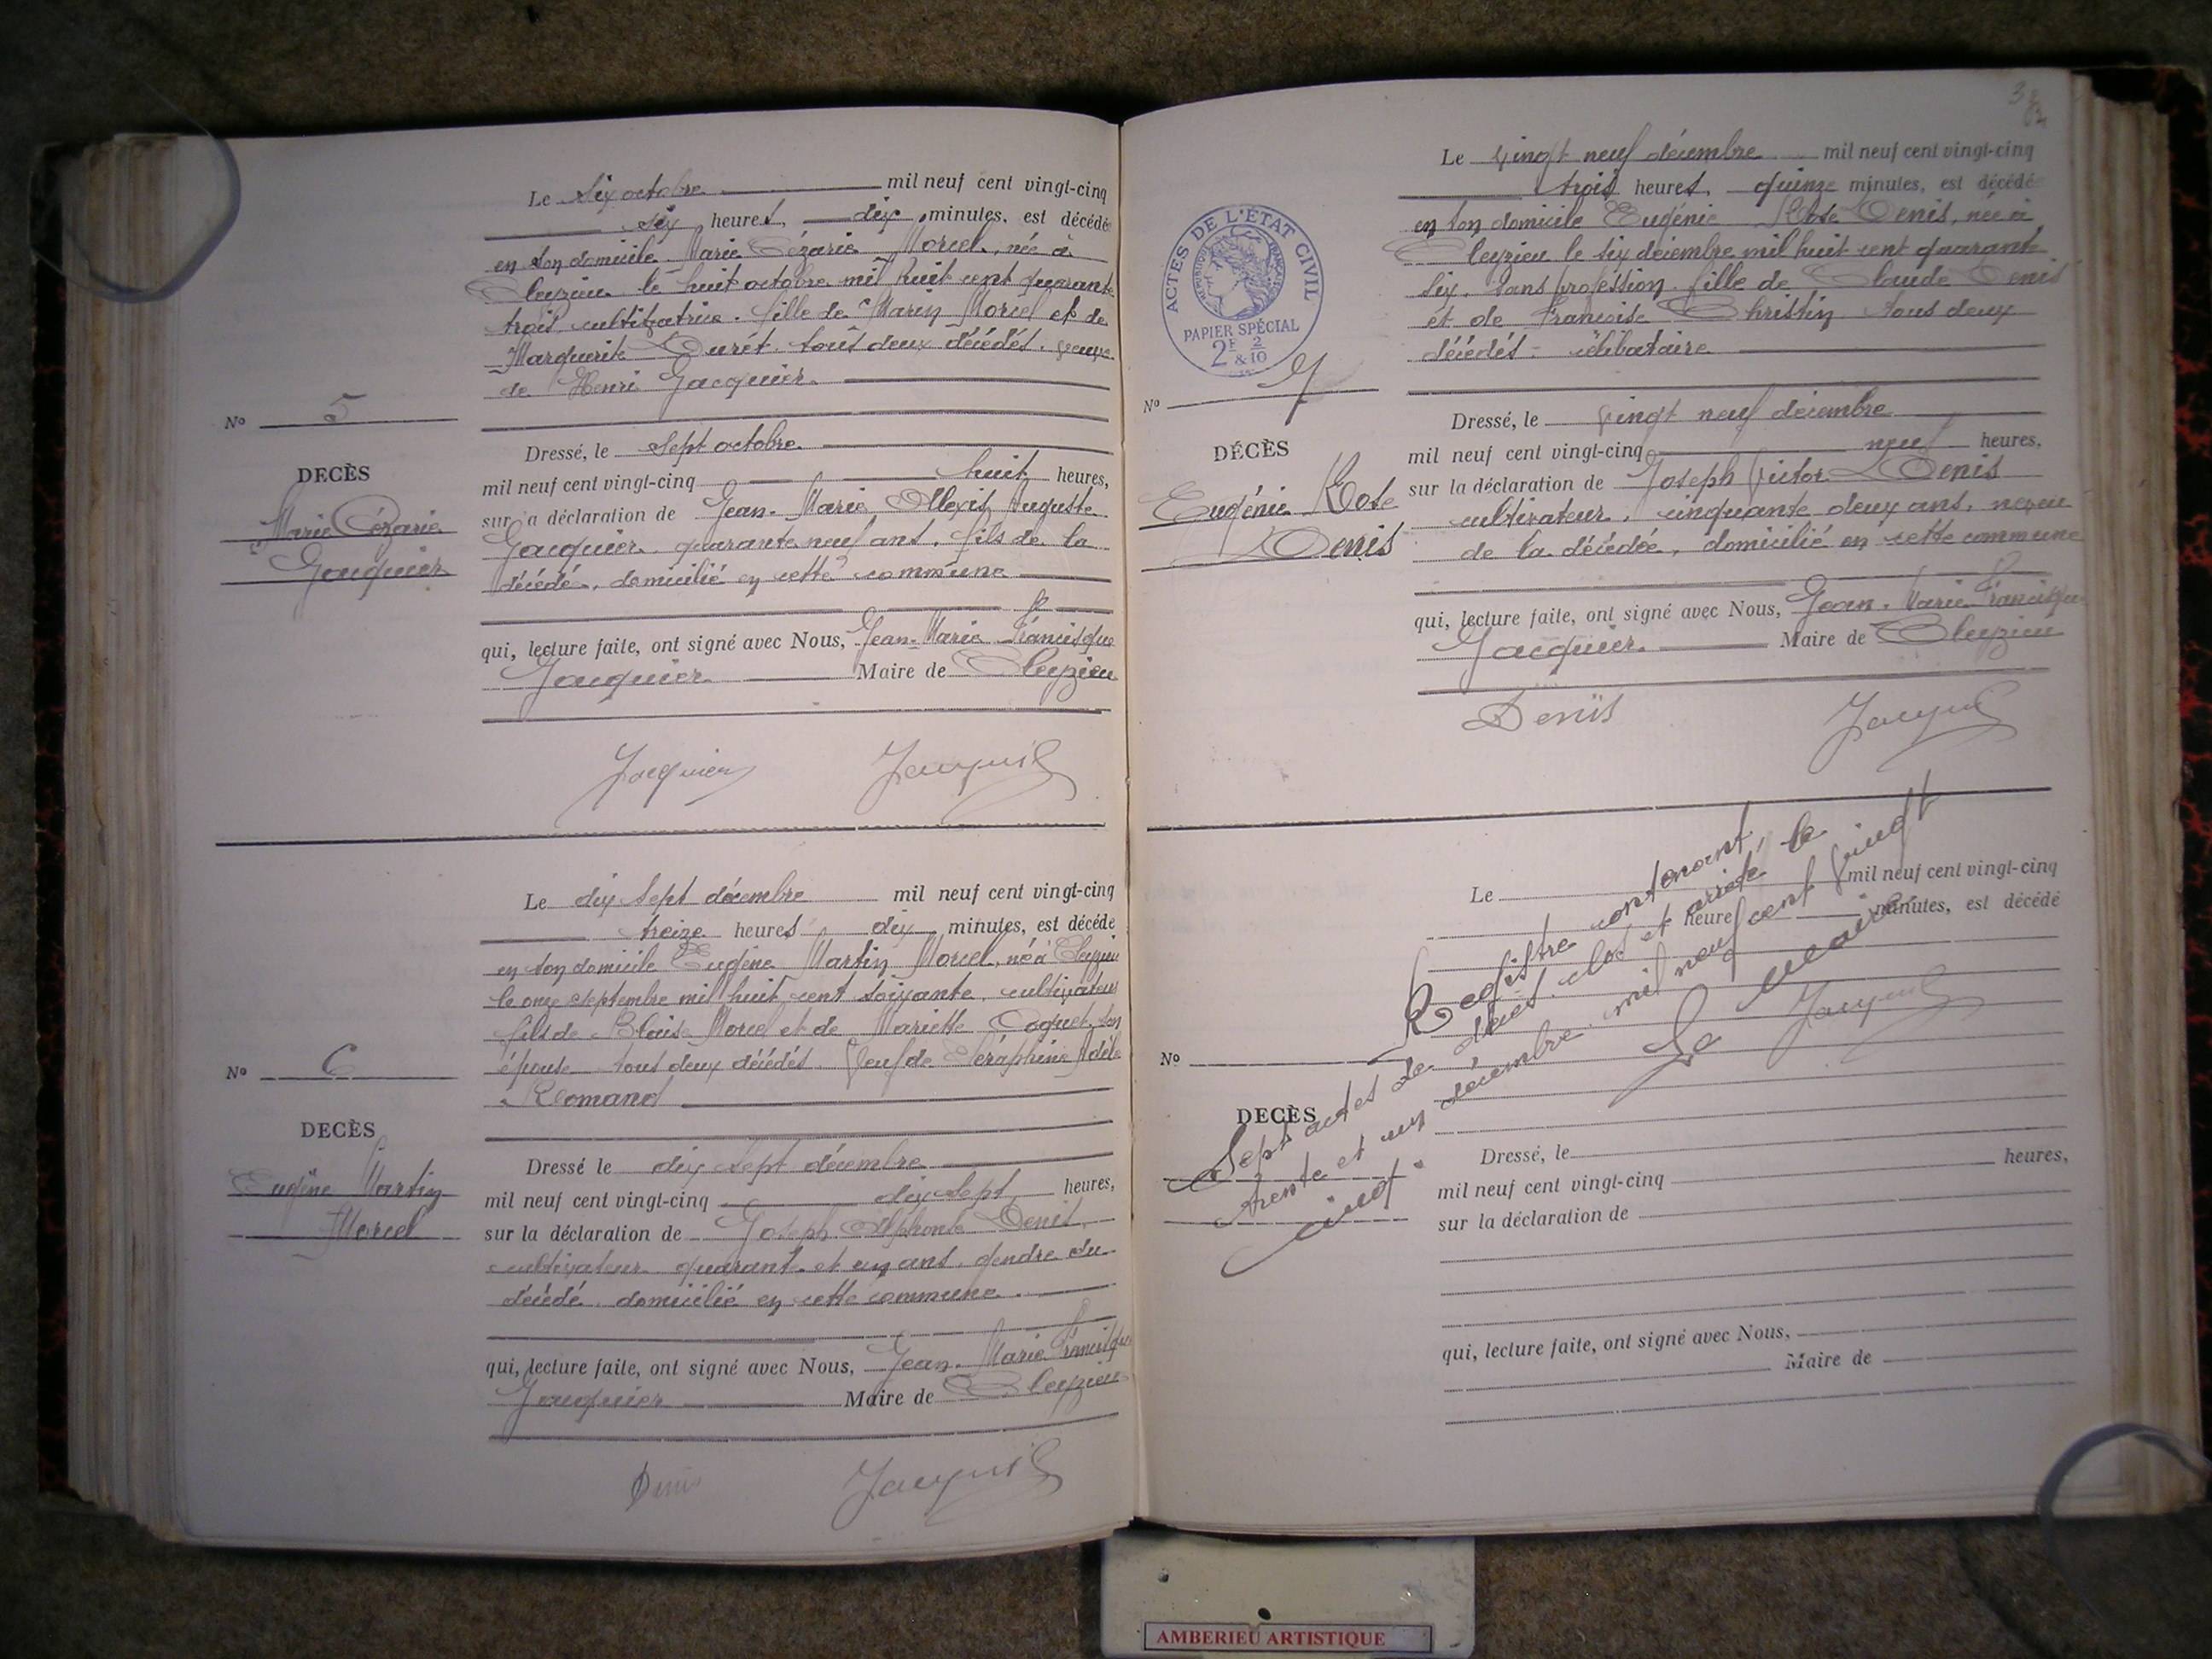 Le six octobre mil neuf cent vingt-cinq
six heures, dix minutes, est décédé
en son domicile Marie Cézarie Morcel, née à
Cleyzieu le huit octobre mil huit cent quarante
trois, cultivatrice. fille de Marin Morcel et de
Marguerite Duret. tous deux décédés. veuve
de Henri Jacquier.
No 5
DECÈS
Marie Cézarie
Jacquier
Dressé, le sept octobre
mil neuf cent vingt-cinq huit heures,
sur la déclaration de Jean-Marie Alexis Auguste
Jacquier. quarante neuf ans. fils de la
décédé. domicilié en cette commune
qui, lecture faite, ont signé avec Nous, Jean-Marie Francisque
Jacquier Maire de Cleyzieu
Jacquier Jacquier
Le dix sept décembre mil neuf cent vingt-cinq
treize heures dix minutes, est décédé
en son domicile Eugène Martin Morcel, né à Cleyzieu
le onze septembre mil huit cent soixante. cultivateur
fils de Blaise Morcel et de Mariette Coquet, son
épouse tous deux décédés. Veuf de Séraphine Adèle
Romand
No 6
DECÈS
Eugène Martin
Morcel
Dressé le dix sept décembre
mil neuf cent vingt-cinq dix sept heures,
sur la déclaration de Joseph Alphonse Denis,
cultivateur quarant. et un ans. gendre du
décédé. domicilié en cette commune.
qui, lecture faite, ont signé avec Nous, Jean-Marie Francisque
Jacquier Maire de Cleyzieu
Denis Jacquier
Le vingt neuf décembre mil neuf cent vingt-cinq
trois heures, quinze minutes, est décédé
en son domicile Eugénie Rose Denis, née à
Cleyzieu le six décembre mil huit cent quarante
six. sans profession. fille de Claude Denis
et de Françoise Christin tous deux
décédés. célibataire
ACTES DE L'ÉTAT CIVIL
RÉPUBLIQUE FRANÇAISE
PAPIER SPÉCIAL
2F 2/10
&
No 7
DÉCÈS
Eugénie Rose
Denis
Dressé, le vingt neuf décembre
mil neuf cent vingt-cinq neuf heures,
sur la déclaration de Joseph Victor Denis
cultivateur, cinquante deux ans, neveu
de la décédée, domicilié en cette commune
qui, lecture faite, ont signé avec Nous, Jean-Marie Francisque
Jacquier. Maire de Cleyzieu
Denis Jacquier
Le mil neuf cent vingt-cinq
heure minutes, est décédé
No
DECÈS
Registre contenant
Sept actes de décès. clos et arrêté le
trente et un décembre mil neuf cent vingt
cinq.
Le Maire
Jacquier
Dressé, le
mil neuf cent vingt-cinq heures,
sur la déclaration de
qui, lecture faite, ont signé avec Nous,
Maire de
AMBERIEU ARTISTIQUE